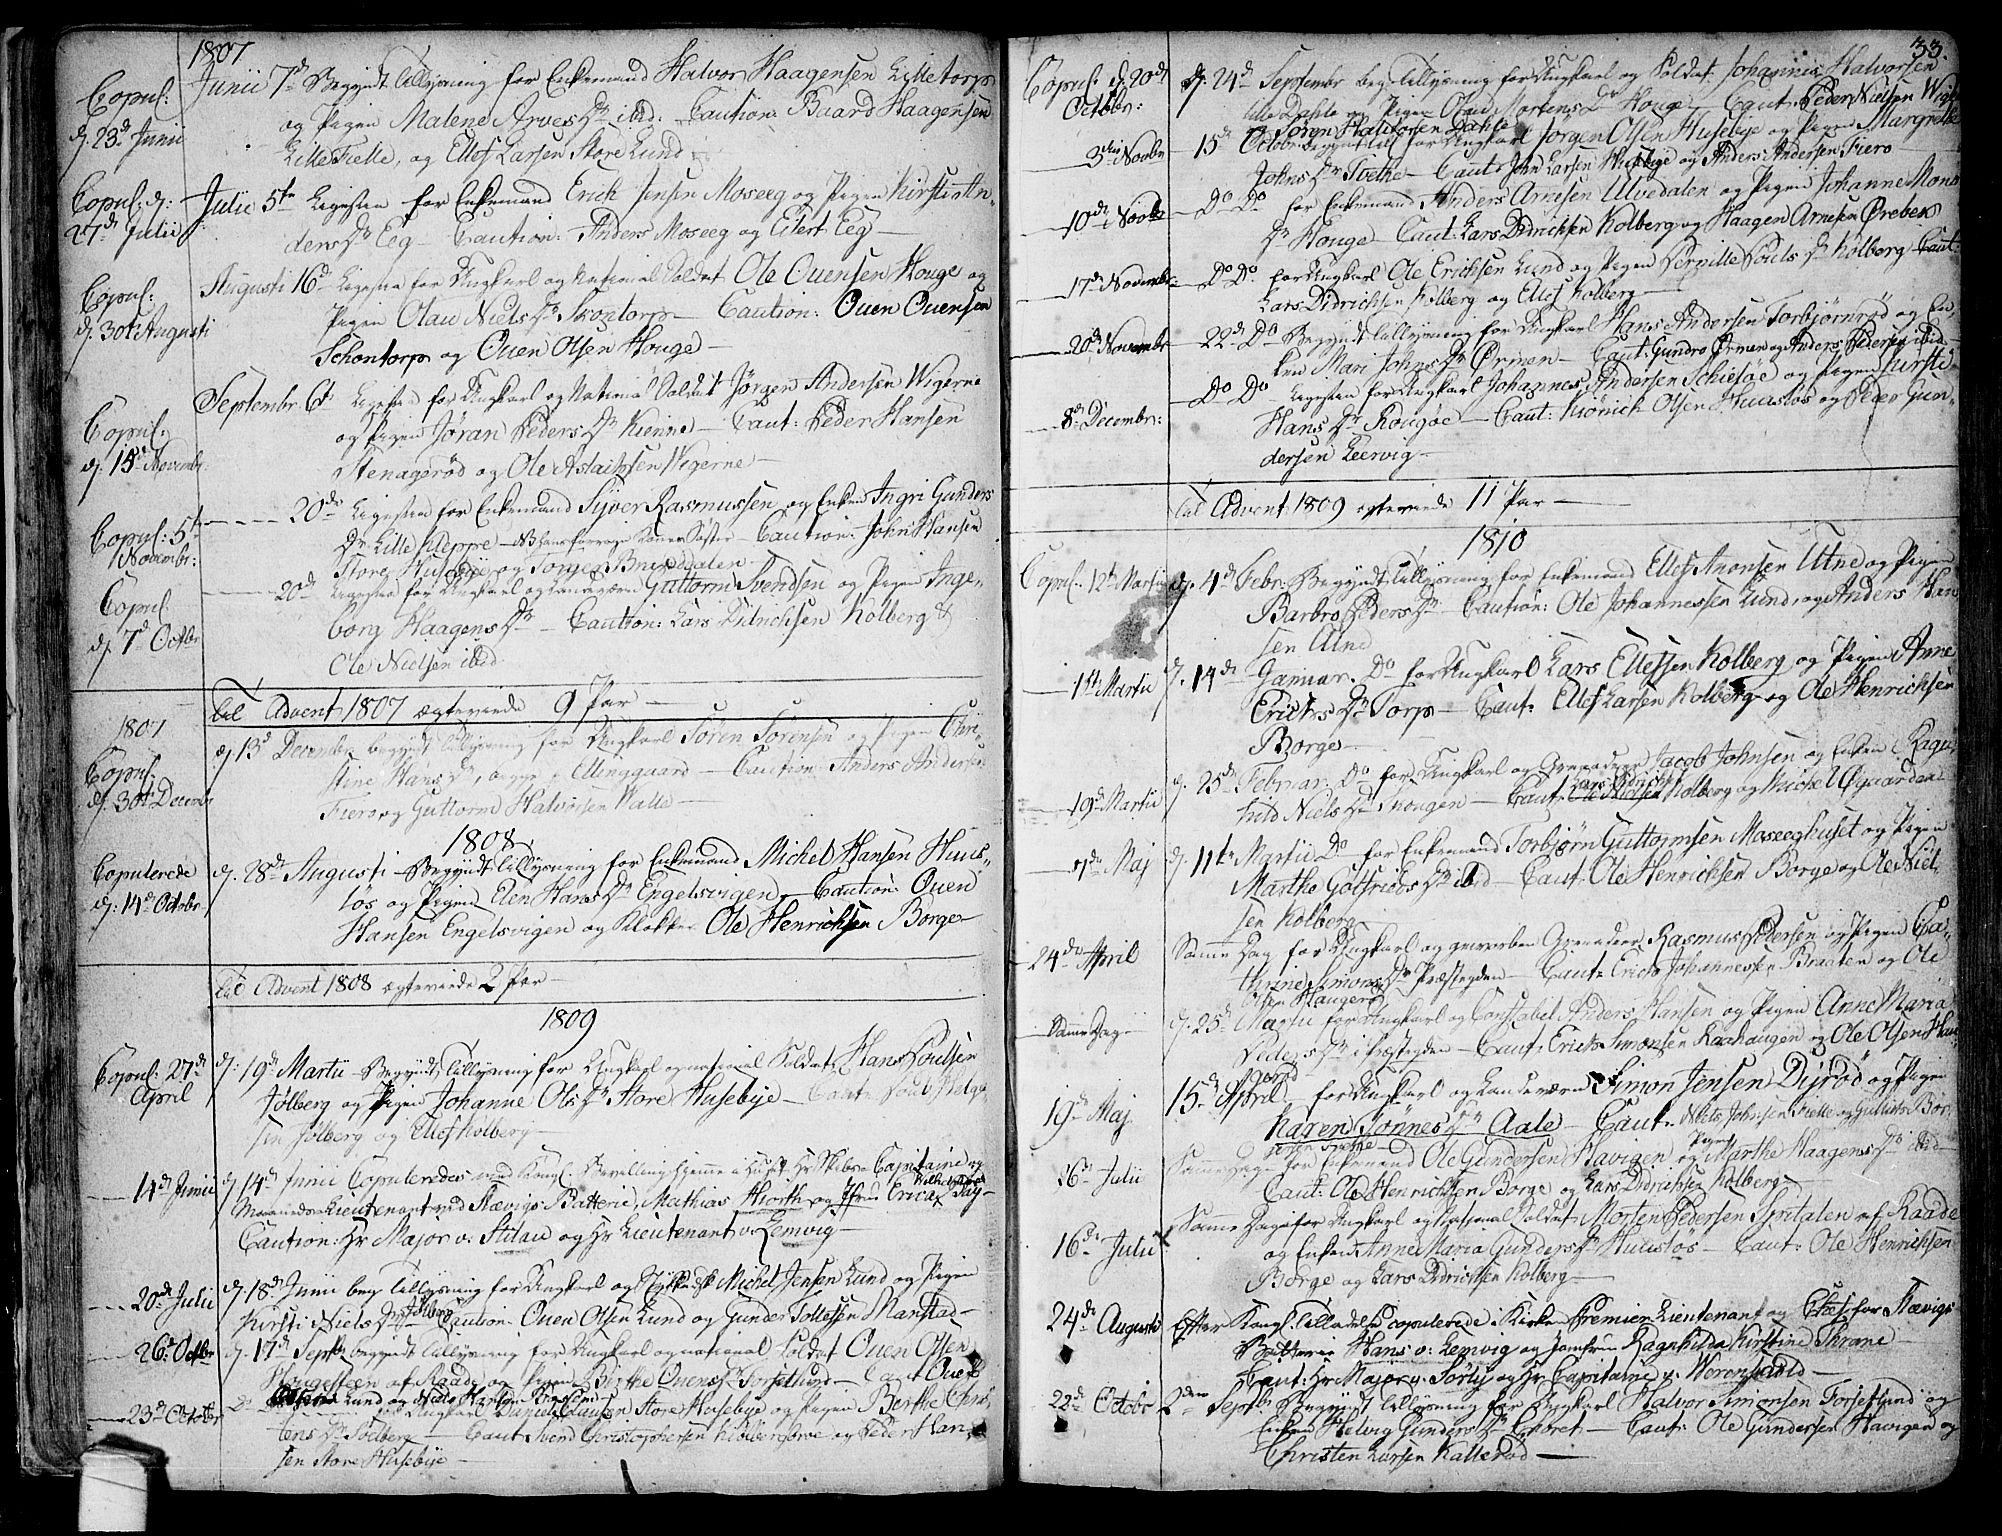 1807
Copul: d. 23d Junii
Junii 7d Begyndt tillysning for Enkemand Halvor Haagensen Lilletorp
og Pigen Malene Arvesdr ibid. Caution: Baard Haagensen
Lille Fielle, og Ellef Larsen Store Lund
Copul: d: 27d Julii
Julii 5te Ligesaa for Enkemand Erich Jensen Moseeg og Pigen Kirstin An-
dersdr Eeg — Caution: Anders Moseeg og Eilert Eeg —
Copul: d. 30t Augusti
Augusti 16d Ligesaa for Ungkarl og National Soldat Ole Ouensen Houge og
Pigen Olau Nielsdr Skontorp — Caution: Ouen Ouensen
Schontorp og Ouen Olsen Houge —
Copul: d. 15d Novembr:
Septembr 6t Ligesaa for Ungkarl og National Soldat Jørgen Andersen Wigerne
og Pigen Jøran Pedersdr Kienne — Caut: Peder Hansen
Stenagerød og Ole Aslaksen Wigerne —
Copul: 5te Novembr:
20de Ligesaa for Enkemand Syver Rasmussen og Enken Ingri Gunders
Dr Lille Kleppe — Caution: John Hansen
Store Husebye og Torger Bruesdalen
Copul: d. 7d Octbr
20d Ligesaa for Ungkarl og Landeværn Guttorm Svendsen og Pigen Inge-
borg Haagensdr — Caution: Lars Didrichsen Kolberg &
Ole Nielsen ibid.
til Advent 1807 ægteviede 9 Par —
1807
Copul: d. 30t Decembr
d. 13d Decembr begyndt tillysning for Ungkarl Søren Sørensen og Pigen Chri-
stine Hansdr, begge p. Ellinggaard — Caution: Anders Andersen
Fiero og Guttorm Halvorsen Walle —
1808
Copulerede d. 14d Octobr
d. 28de Augusti — Begyndt tillysning for Enkemand Michel Hansen Huus-
løs og Pigen Elen Hansdr Engelsvigen — Caution: Ouen
Hansen Engelsvigen og Klokker Ole Henrichsen Borge —
til Advent 1808 ægteviede 2 Par —
1809
Copul: 27de April
d: 19d Martii — Begyndt tillysning for Ungkarl og national Soldat Hans Poulsen
Tølberg og Pigen Johanne Olsdr Store Husebye — Caut: Poul Helge-
sen Tølberg og Ellef Kolberg —
14d Junii
d. 14d Junii Copuleredes med Kongl. Bevilling hjemme i Huset Hr Skibs-Capitaine og
Maaneds-Lieutenant ved Stævigs Batterie, Mathias Hiorth og Jfru Erica
Caution: Hr Major v: Stilau og Hr Lieutenant v: Lemvig —
20de Julii
d. 18d Junii beg. tillysning for Ungkarl og Michel Jensen Lund og Pigen
Kirsti Nielsdr Tolberg — Caution: Ouen Olsen Lund og Gunder Tollefsen Manstad —
26d Octbr
d. 17d Septbr begyndt tillysning for Ungkarl og national Soldat Ouen Olsen
Hougesteen af Raade og Pigen Birthe Ouensdr Torsetlund — Caut: Ouen
Lund og Niels
23d Octobr
Do Ungkarl Daniel Clausen Store Husebye og Pigen Berthe Chri-
stensdr Tolberg — Caut: Svend Christophersen og Peder Han-
sen Store Husebye —
33.
Copul: d. 20de Octobr:
d. 24d Septembr beg. tillysning for Ungkarl og Soldat Johannes Halvorsen
lille Dahle og Pigen Olau Mortensdr Houge — Caut: Peder Nielsen
& Søren Halvorsen Dahle
3die Novbr
15d Octobr: begyndt till. for Ungkarl Jørgen Olsen Husebye og Pigen Margrethe
Johnsdr Tvethe — Caut: John Larsen Husebye og Anders Andersen Fiero —
10de Novbr
Do Do for Enkemand Anders Arnesen Ulvedalen og Pigen Johanne Mons
Dr Houge — Caut: Lars Didrichsen Kolberg og Haagen Arnesen Ørebek
17de Novembr
Do Do. for Ungkarl Ole Erichsen Lund og Pigen Pernille Poulsdr Kolberg — Caut:
Lars Didrichsen Kolberg og Ellef Kolberg —
20de Novembr
22d. Do Begyndt tillysning for Ungkarl Hans Andersen Torbjørnrød og En-
ken Mari Johnsdr Ørmen — Caut: Gundro Ørmen og Anders Pedersen ibid —
8de Decembr:
Do Do Ligesaa for Ungkarl Johannes Andersen Schieløe og Pigen Kirsti-
Hansdr Rougøe — Caut: Krønich Olsen Huusløs og Peder Gun-
dersen Leervig —
til Advent 1809 ægteviede 11 Par —
1810
Copul: 12te Martii
d. 4d Febr: Begyndt tillysning for Enkemand Ellef Anonsen Utne og Pigen
Barbro Pedersdr — Caution: Ole Johannessen Lund og Anders Han-
sen Alne
1ste Martii
d. 14de Januar. Do for Ungkarl Lars Ellefsen Kolberg og Pigen Anne
Erichsdr Torp — Caut: Ellef Larsen Kolberg og Ole Henrichsen
Borge —
19d Martii
d. 25de Februar. Do for Ungkarl og Grenadeer Jacob Johnsen og Enken Ragn-
hild Nielsdr Snougen — Caut: Lars Didrichs Kolberg og Michel Øgaarden
7de Maj
d. 11te Martii Do for Enkemand Torbjørn Guttormsen Moseeghuset og Pigen
Marthe Gotfridsdr ibid — Caut: Ole Henrichsen Borge og Ole Niel-
sen Kolberg —
24de April
Samme Dag for Ungkarl og gevorben Grenadeer Rasmus Pedersen og Pigen Ca-
thrine Simonsdr Præstegden — Caut: Erich Johannessen Braaten og Ole
Olsen Haugerød,
Samme Dag
d. 25d Martii for Ungkarl og Constabel Anders Hansen og Pigen Anne Maria
Pedersdr i Præstegden — Caut: Erich Simonsen Raahaugen og Ole Olsen Hau-
gerød
19d Maj
15de April for Ungkarl og Landeværn Simon Jensen Dyrød og Pigen
Karen Tønnesdr Aale — Caut: Niels Johnsen Fielle og
16d Julii
Samme Dag for Enkemand Ole Gundersen Havigen og Pigen Marthe Haagensdr ibid —
Caut: Ole Henrichsen Borge og Lars Didrichsen Kolberg —
16de Julii
Samme Dag for Ungkarl og National Soldat Morten Pedersen Spitalen af Raade
og Enken Anne Maria Gundersdr Huusløs — Caut: Ole Henrichsen
Borge og Lars Didrichsen Kolberg —
24de Augusti
Efter Kongl: tilladelse copulerede i Kirken Premier Lieutenant og Chef for Stævigs
Batterie Hans v: Lemvig og Jomfrue Ragnhilda Kirstine Thrane —
Caut: Hr Major v: Sørby og Hr Capitaine v. Werenskiold —
22de Octobr
2den Septbr: Begyndt tillysning for Ungkarl Halvor Simonsen Torsetlund og
Enken Helvig Gundersdr Ekoret — Caut: Ole Gundersen Havigen og
Christen Larsen Kallerød —